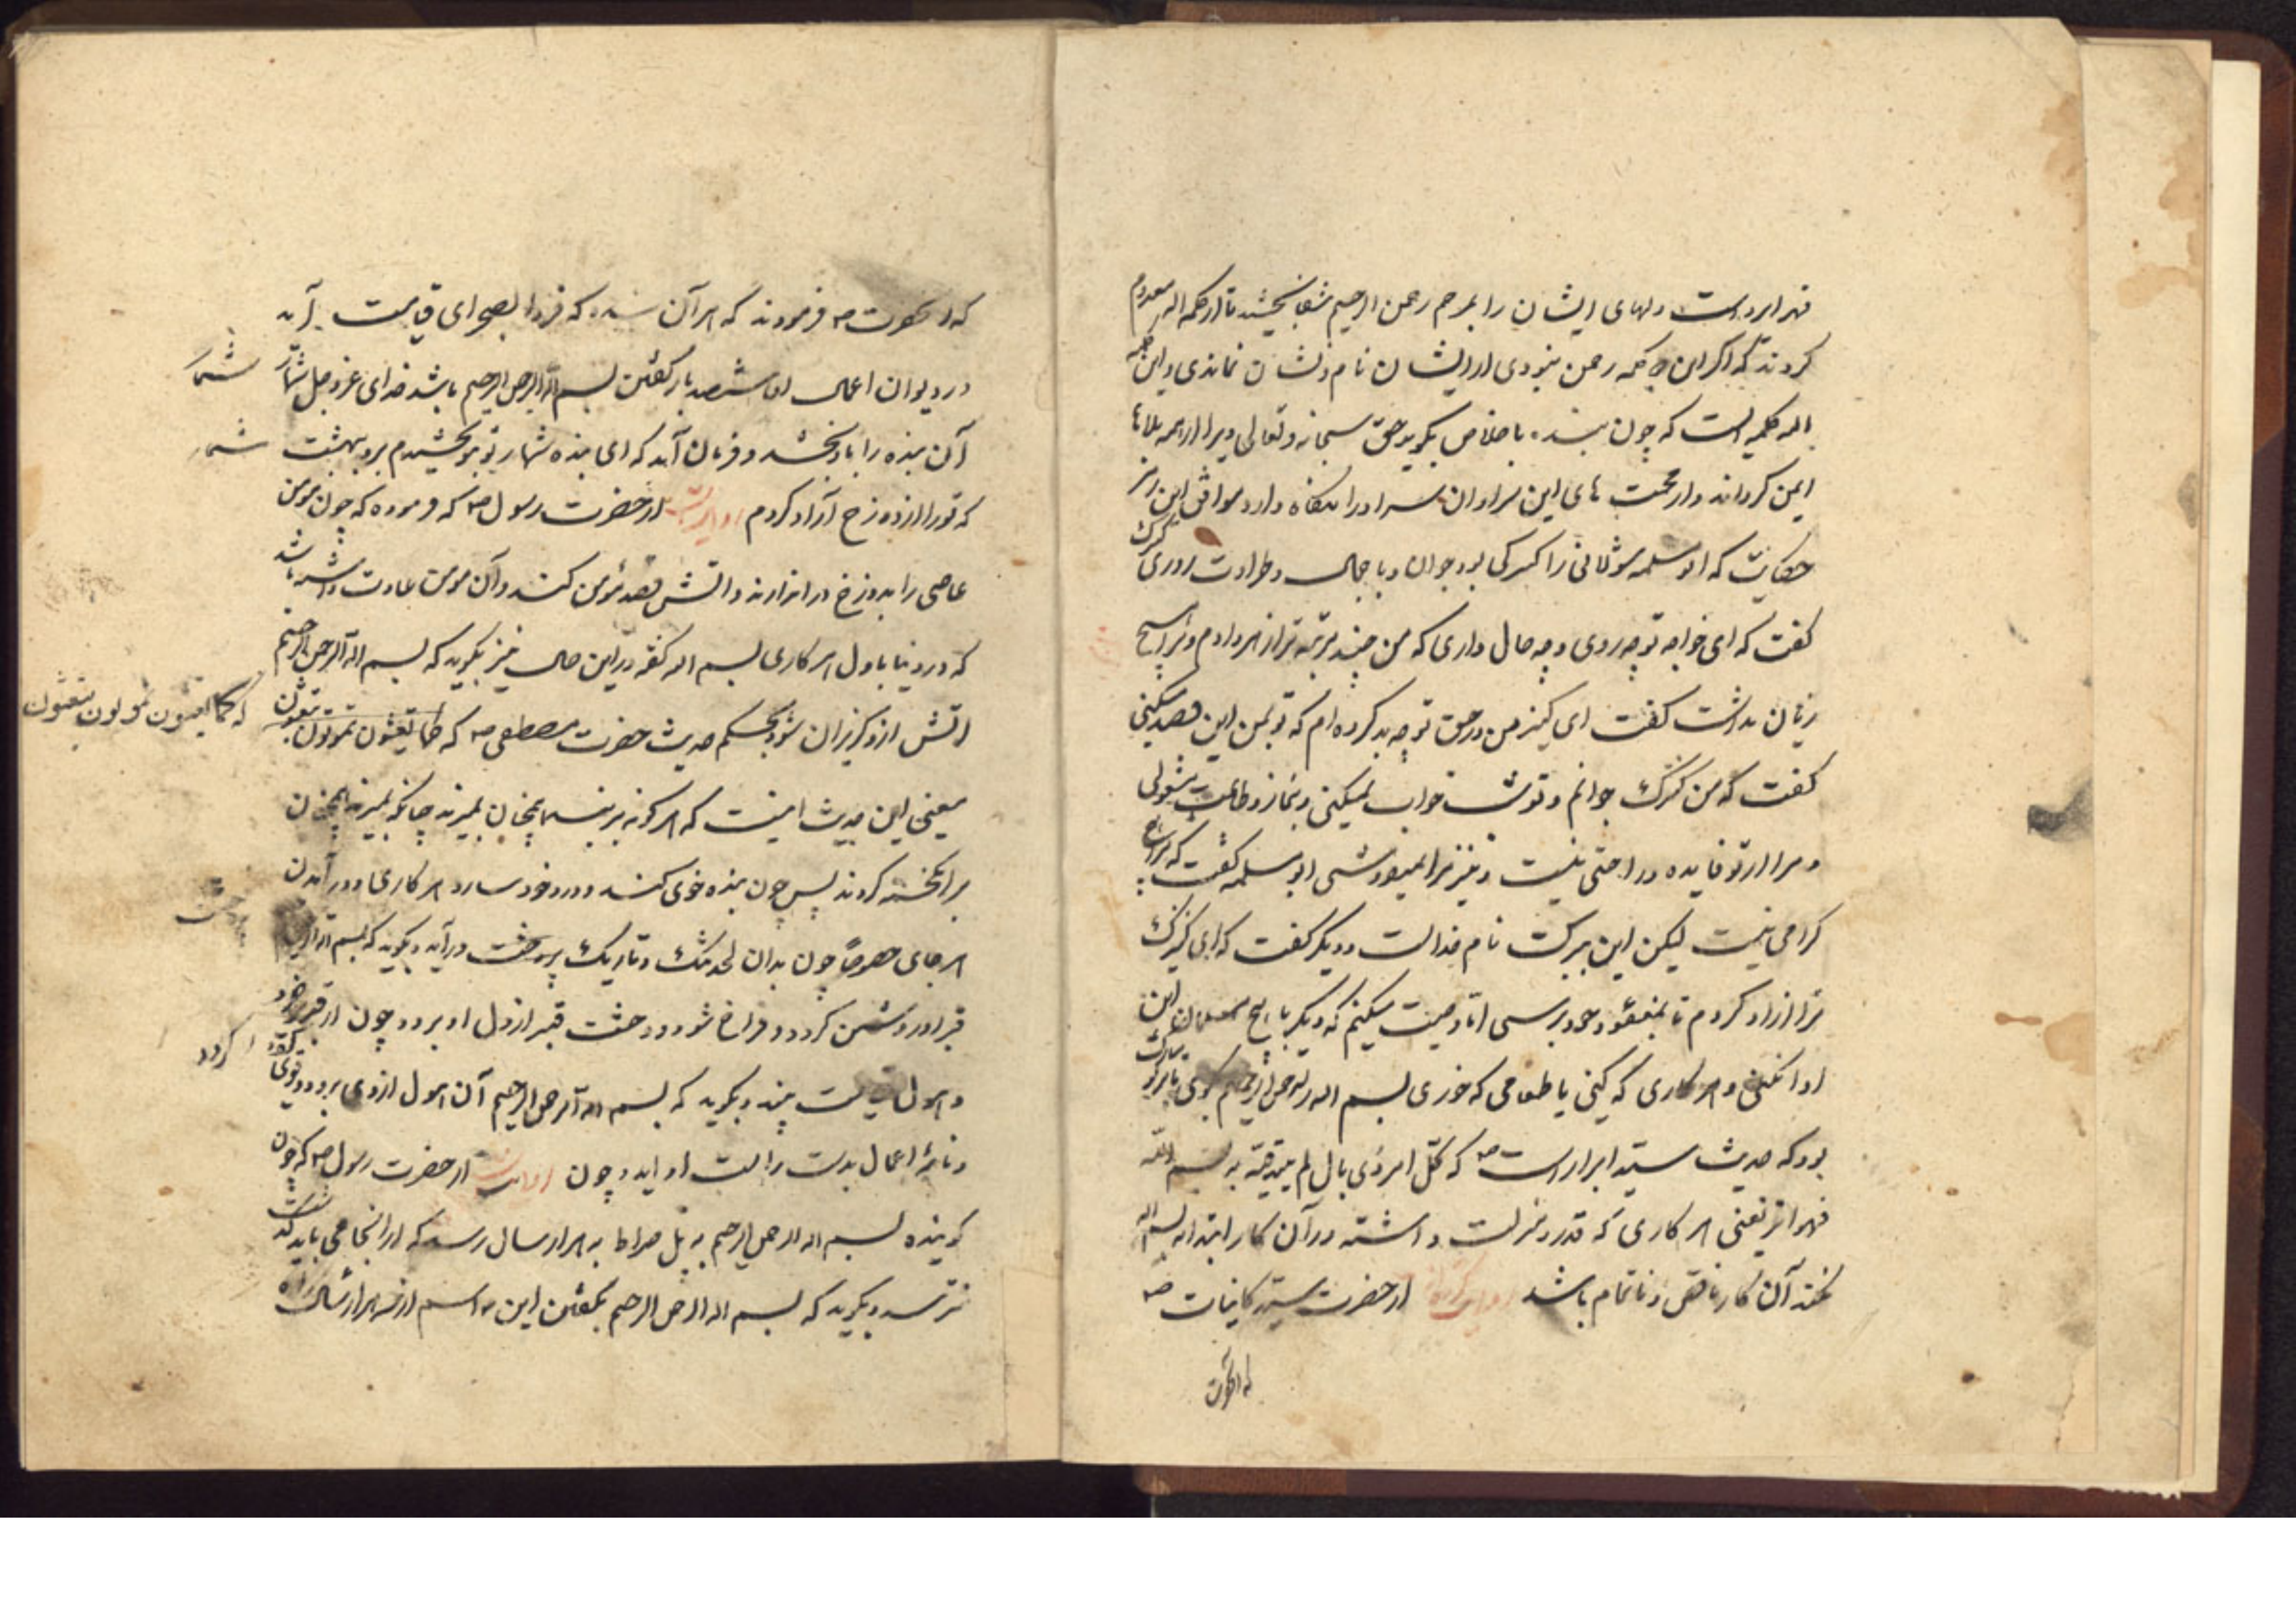 دلهای ایشان را بمرهم رحمن الرحیم شفا بخشید تا از کلمه الله معدوم
کردند که اگر این دو کلمه رحمن نبودی از ایشان نام و نشان نماندی و این کلمه
کلمه است که چون بنده باخلاص بگوید حق سبحانه و تعالی ویرا از همه بلاها
ایمن کرداند و از محنت های این سرا و آن سرا او را نگاه دارد موافق این
حکایت که ابو سلمه را کنیزکی بود جوان و با جمال و طراوت روزی کنیزک
کفت که ای خواجه تو چه روی و چه حال داری که من چند مرتبه ترا زهر دادم و ترا هیچ
زیان نداشت کفت ای کنیز من در حق تو چه بد کرده ام که تو بمن این قصد میکنی
کفت که من کنیزک جوانم و تو شب خواب نمیکنی و بنماز و طاعت مشغولی
و مرا از تو فایده و راحتی نیست و نیز مرا نمیفروشی ابو سلمه کفت که مرا
کرامی نیست لیکن این ببرکت نام خداست و دیگر کفت که ای کنیزک
ترا ازاد کردم تا بمقصود خود برسی اما وصیت میکنم که دیگر با هیچ مسلمان این
ادا نکنی و هر کاری که کنی یا طعامی که خوری بسم الله الرحمن الرحیم بگوی تا برتو مبارک
بود که حدیث سید ابرار است ص که کل امر ذی بال لم یبدء فیه به بسم الله
فهو ابتر یعنی هر کاری که قدر و منزلت داشته در آن کار ابتدا به بسم الله
نکند آن کار ناقص و ناتمام باشد از حضرت سید کاینات ص
که آنحضرت
که آنحضرت ص فرمودند که هر آن بنده که فردا بصحرای قیامت آید
در دیوان اعمال او ششصد بار کفتن بسم الله الرحمن الرحیم باشد خدای عز و جل شمار
شمار
آن بنده را باو بخشد و فرمان آید که ای بنده شمار تو بتو بخشیدم برو ببهشت
شمار
که تو را از دوزخ آزاد کردم روایتست از حضرت رسول ص که فرموده که چون مومن
عاصی را بدوزخ در اندازند و اتش قصد مومن کند و آن مومن عادت داشته باشد
که در دنیا باول هر کاری بسم الله کفته در این حال نیز بگوید که بسم الله الرحمن الرحیم
اتش ازو کریزان شود بحکم حدیث حضرت مصطفی ص که کما تعیشون تموتون تبعثون
که کما تعیشون تموتون تبعثون
یعنی این حدیث اینست که هر کونه بزیند همچنان بمیرند چنانکه بمیرند همچنان
برانکیخته کردند پس چون بنده خوی کند و در خود سازد هر کاری و در آمدن
هر جای خصوصا چون بدان لحد تنک و تاریک پر وحشت در آید و بگوید که بسم الله
وحشت
قبر او روشن کردد و فراخ شود و وحشت قبر از دل او برود و چون از قبر برخیزد
کردد
و هول قیامت بیند و بگوید که بسم الله الرحمن الرحیم آن هول از وی برود
و نامه اعمال بدست راست او آید و چون روایتست از حضرت رسول ص که چون
کوینده بسم الله الرحمن الرحیم به پل صراط به هزار سال رسد که از آنجا می باید کذشت
نترسد و بگوید که بسم الله الرحمن الرحیم بکفتن این اسم از هزار سال راه